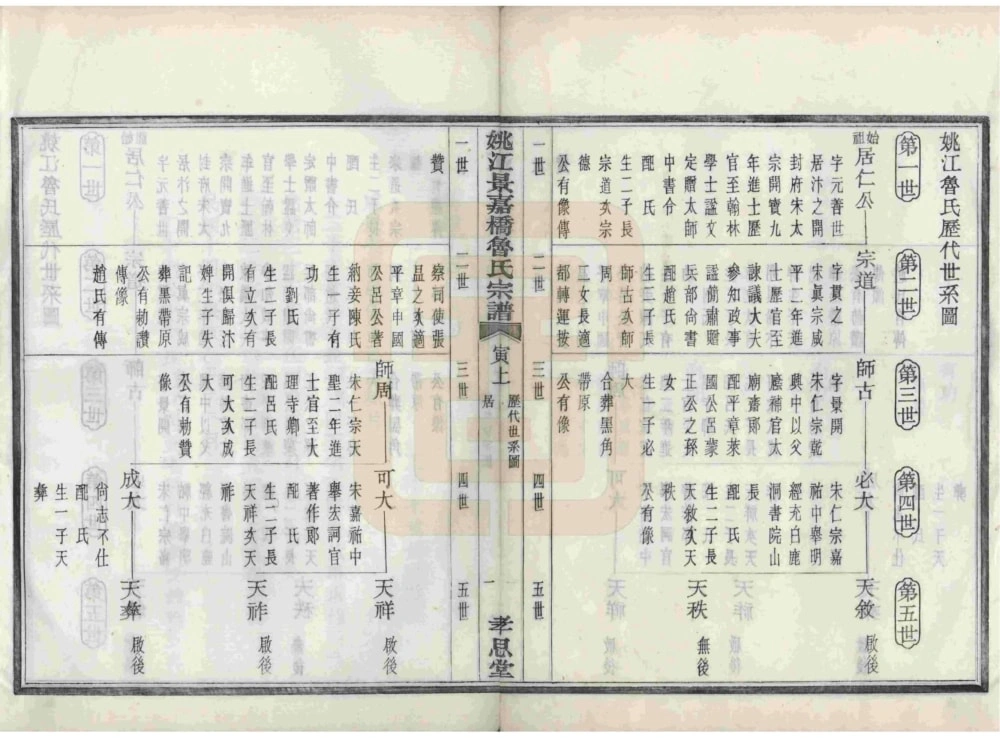 姚江魯氏歷代世系圖
第一世
第二世
第三世
第四世
第五世
始祖
居仁公
字元善世
居汴之開
封府宋太
宗開寶九
年進士歷
官至翰林
學士諡文
定贈太師
中書令
配　氏
生二子長
宗道次宗
德
公有像傳
宗道
字貫之
宋眞宗咸
平二年進
士歷官至
諫議大夫
參知政事
諡簡肅贈
兵部尙書
配趙氏
生二子長
師古次師
周
三女長適
都轉運按
師古
字景開
宋仁宗乾
興中以父
廕補官太
廟齋郞
配平章萊
國公呂蒙
正公之孫
女
生一子必
大
合葬黑角
帶原
公有像
必大
宋仁宗嘉
祐中舉明
經充白鹿
洞書院山
長
配　氏
生二子長
天敘次天
秩
公有像
天敘
啟後
天秩
無後
一世
二世
三世
四世
五世
姚江景嘉橋魯氏宗譜
寅上
歷代世系圖
居
一
孝思堂
一世
二世
三世
四世
五世
贊
察司使張
昷之次適
平章中國
公呂公著
納妾陳氏
生一子有
功
生劉氏
生三子長
有立次有
開俱歸汴
婢生子失
記
葬墨帶原
公有勅讚
傳像
趙氏有傳
師周
宋仁宗天
聖二年進
士官至大
理寺卿
配呂氏
生二子長
可大次成
大
公有勅贊
像
可大
宋嘉祐中
舉宏詞官
著作郞
配　氏
生二子長
天祥次天
祚
天祥
啟後
天祚
啟後
成大
尙志不仕
配　氏
生一子天
彝
天彝
啟後